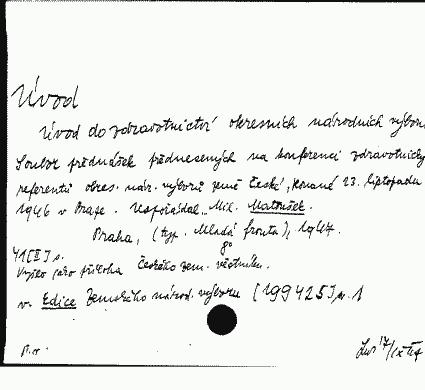 Úvod
Úvod do zdravotnictví okresních národních výborů
Soubor přednášek přednesených na konferenci zdravotnických
referentů okres. nár. výborů země České, konané 23. listopadu
1946 v Praze. Uspořádal Mil. Matoušek.
Praha, (typ. Mladá fronta), 1947.
8°
41 [II] s.
Vyšlo jako příloha Českého zem. věstníku.
v. Edice Zemského národ. výboru [199425] 1
17/IX